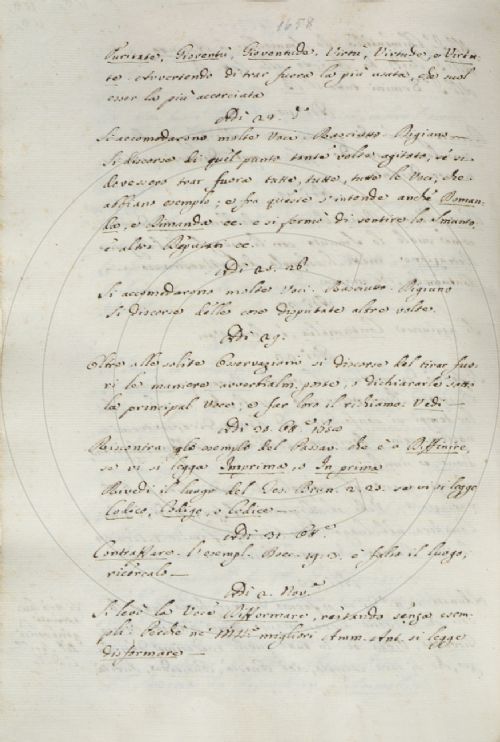 1658
Puritate, Gioventù, Gioventude, Virtù, Virtude, o Virtu-
te. Avvertendo di trar fuora la più usata, che suol
esser la più accorciata
Adi 24. d.º
Si accomodarono molte Voci. Rasciutto. Rigiano—
Si discorse di quel punto tante volte agitato, se si
dovessero trar fuora tutte, tutte, tutte le Voci, che
abbiano esempio; e fra queste s'intende anche Doman-
da, e Dimanda ec. e si fermò di sentire lo Smunto,
e altri Deputati ec.
Adi 25. 26.
Si accomodarono molte Voci. Rasciutto. Rigiano
Si discorse delle cose disputate altre volte.
Adi 29.
Oltre alle solite osservazioni si discorse del tirar fuo-
ri le maniere avverbialm. poste, o dichiararle sotto
la principal Voce; e far loro il richiamo. Vedi—
Adi 30. 8bre 1658
Riscontra gli esempio del Passav. che è a Diffinire,
se vi si legge Imprima, o In prima
Rivedi il luogo del Tes. Brun. 2. 23. se vi si legge
Codico, Codigo, o Codice—
Adi 31. 8bre
Contraffare. l'esempl. Bocc. 19. 3. è falso il luogo,
ricercalo—
Adi 2. Nov.e
Si levi la Voce Difformare, restando senza esem-
pli. Perchè ne' M.ti migliori Amm. Ant. si legge
disformare—